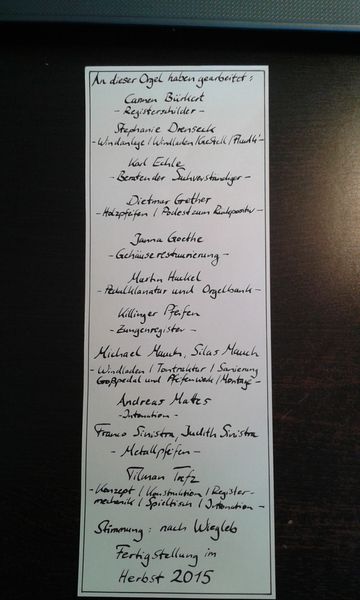 An dieser Orgel haben gearbeitet:
Carmen Bürkert
- Registerschilder -
Stephanie Drenseck
- Windanlage / Windladen / Gestell /
Karl Echle
- Beratender Sachverständiger -
Dietmar Grether
- Holzpfeifen / Podest zum
Janna Goethe
- Gehäuserestaurierung -
Martin Huckel
- Pedalklaviatur und Orgelbank -
Killinger Pfeifen
- Zungenregister -
Michael Mauch, Silas Mauch
- Windladen / Tontraktur / Sanierung
Großpedal und Pfeifenwerk / Montage -
Andreas Mattes
- Intonation -
Franco Sinistra, Judith Sinistra
- Metallpfeifen -
Tilman Trefz
- Konzept / Konstruktion / Register-
mechanik / Spieltisch / Intonation -
Stimmung: nach Wiegleb
Fertigstellung im
Herbst 2015